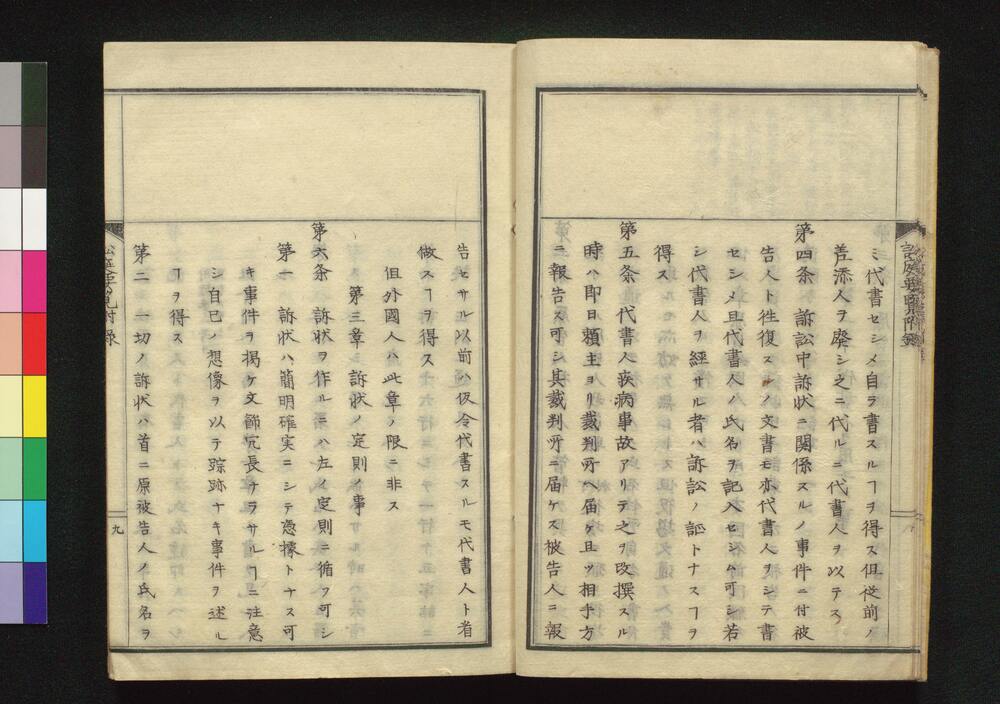 ミ代書セシメ自ラ書スルヿヲ得ス但從前ノ
差添人ヲ廢シ之ニ代ルニ代書人ヲ以テス
第四条 訴訟中訴狀ニ関係スルノ事件ニ付被
告人ト往復スルノ文書モ亦代書人ヲシテ書
セシメ且代書人ノ氏名ヲ記入セシム可シ若
シ代書人ヲ經サル者ハ訴訟ノ證トナスヿヲ
得ス
第五条 代書人疾病事故アリテ之ヲ改撰スル
時ハ即日頼主ヨリ裁判所ヘ届ケ且ツ相手方
ニ報告ス可シ其裁判所ニ届ケス被告人ニ報
告セサル以前ハ仮令代書スルモ代書人ト看
做スヿヲ得ス
但外國人ハ此章ノ限ニ非ス
第三章 訴狀ノ定則ノ事
第六条 訴狀ヲ作ルニハ左ノ定則ニ循フ可シ
第一 訴狀ハ簡明確実ニシテ憑據トナス可
キ事件ヲ掲ケ文飾冗長ナラサルヿニ注意
シ自已ノ想像ヲ以テ踪跡ナキ事件ヲ述ル
ヿヲ得ス
第二 一切ノ訴狀ハ首ニ原被告人ノ氏名ヲ
九